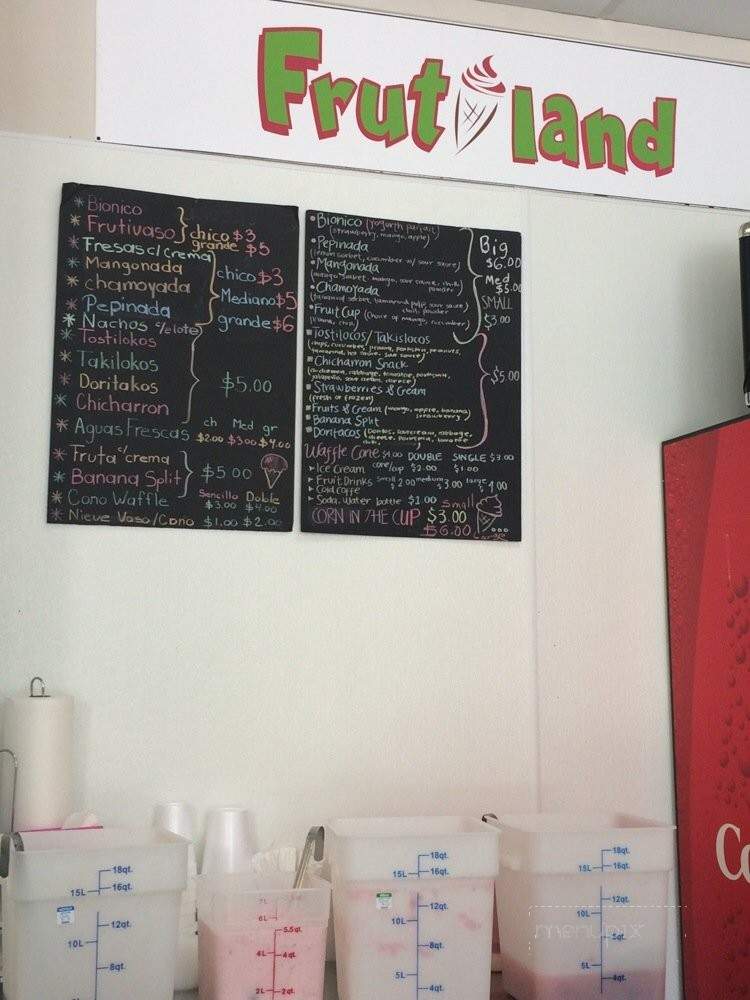 Frutiland
* Bionico
* Frutivaso
chico $3
grande $5
* Fresas c/crema
* Mangonada
* chamoyada
* Pepinada
* Nachos c/elote
chico $3
Mediano $5
grande $6
* Tostilokos
* Takilokos
* Doritakos
* Chicharron
$5.00
* Aguas Frescas ch Med gr
$2.00 $3.00 $4.00
* Fruta c/crema
* Banana Split
$5.00
* Cono Waffle Sencillo Doble
$3.00 $4.00
* Nieve Vaso/Cono $1.00 $2.00
Bionico (yogurth parfait)
(strawberry, mango, apple)
Pepinada
(lemon sorbet, cucumber w/ sour sauce)
Mangonada
(mango sorbet, mango, sour sauce, chili powder)
Chamoyada
(tamarind sorbet, tamarind pulp, sour sauce, chili powder)
Fruit Cup (choice of mango, cucumber)
Big
$6.00
Med
$5.00
SMALL
$3.00
Tostilocos/Takislocos
Chicharron Snack
Strawberries & Cream
(fresh or frozen)
Fruits & Cream (mango, apple, banana)
strawberry
Banana Split
Doritacos
$5.00
Waffle Cone $4.00 DOUBLE SINGLE $3.00
Ice Cream cone/cup $2.00 $1.00
Fruit Drinks small $2.00 medium $3.00 large $4.00
Cold Coffe
Soda, Water bottle $1.00
CORN IN THE CUP Small $3.00
$6.00 Large
18qt.
15L
16qt.
12qt.
10L
8qt.
6L
5.5qt.
4L
4qt.
2L
2qt.
18qt.
15L
16qt.
12qt.
10L
8qt.
5L
4qt.
18qt.
15L
16qt.
12qt.
10L
5L
4qt.
Co
menupix